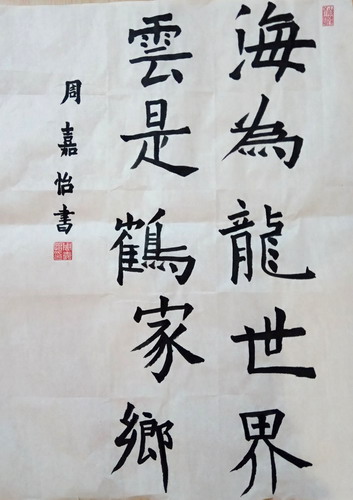 海為龍世界
雲是鶴家鄉
周嘉怡書